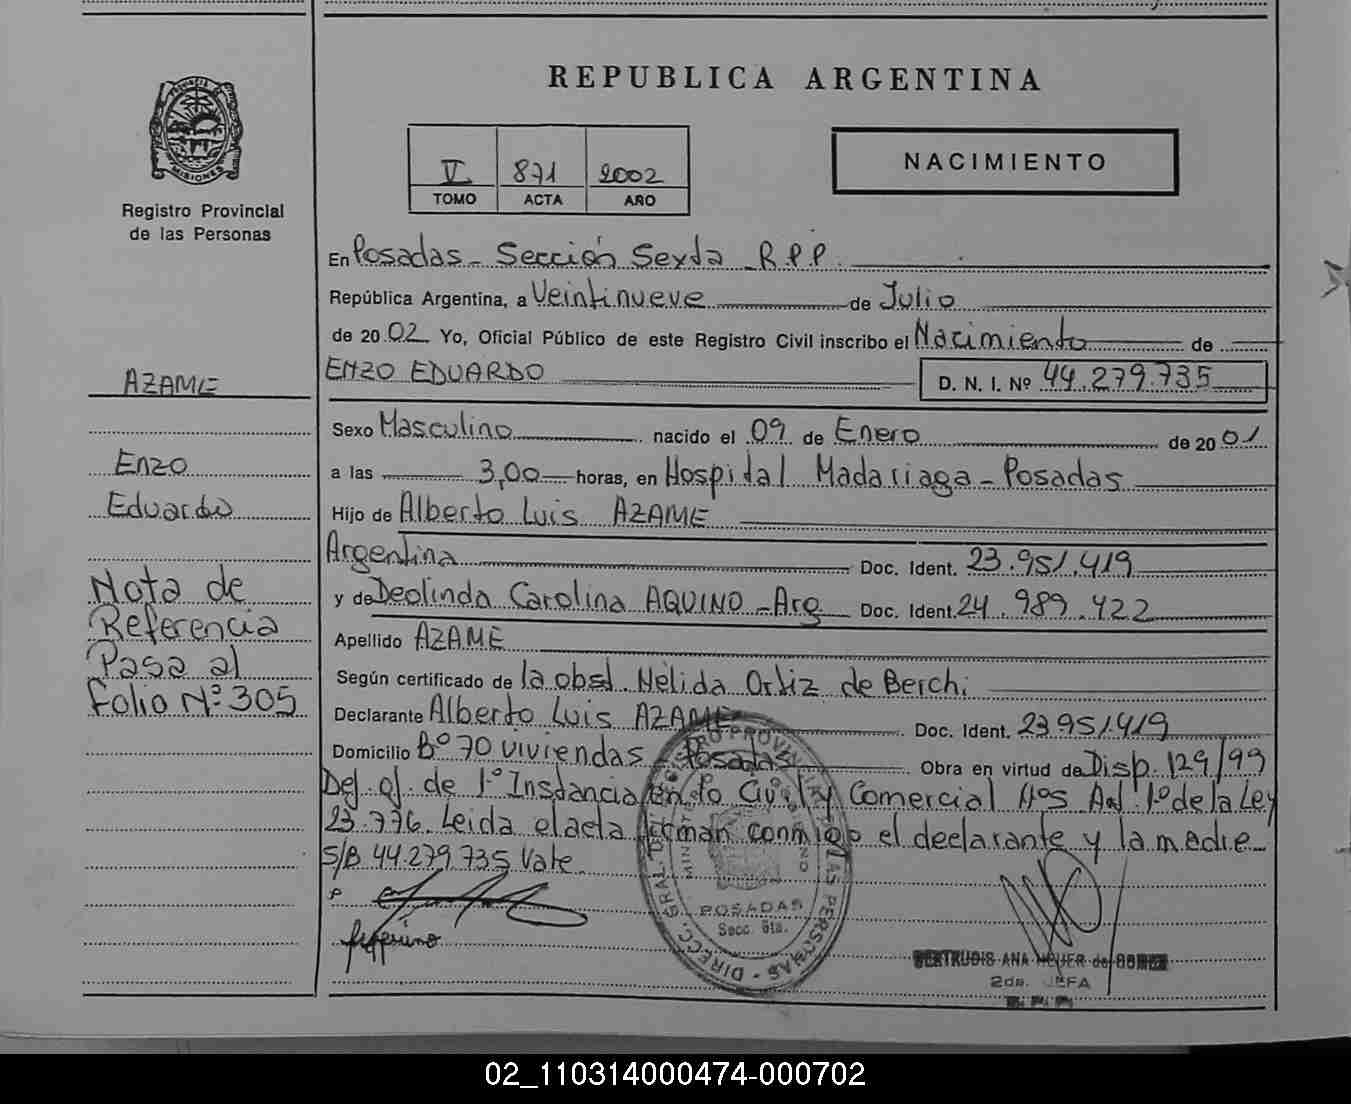 REPUBLICA ARGENTINA
PROVINCIA DE
MISIONES
Registro Provincial
de las Personas
V 871 2002
TOMO ACTA AÑO
NACIMIENTO
En Posadas - Sección Sexta - R.P.P.
República Argentina, a Veintinueve de Julio
de 2002 Yo, Oficial Público de este Registro Civil inscribo el Nacimiento de
ENZO EDUARDO D. N. I. Nº 44.279.735
Sexo Masculino nacido el 09 de Enero de 2001
a las 3,00 horas, en Hospital Madariaga - Posadas
Hijo de Alberto Luis AZAME
Argentina Doc. Ident. 23.951.419
y de Deolinda Carolina AQUINO - Arg Doc. Ident. 24.989.422
Apellido AZAME
Según certificado de la obst. Nelida Ortiz de Berchi
Declarante Alberto Luis AZAME Doc. Ident. 23951419
Domicilio Bº 70 viviendas Posadas Obra en virtud de Disp. 129/99
Def. of. de 1º Instancia en lo Civil y Comercial Nº5 Art 1º de la Ley
23.776. Leida el acta firman conmigo el declarante y la madre
S/B 44.279.735 Vale.
AZAME
Enzo
Eduardo
Nota de
Referencia
Pasa al
Folio Nº 305
DIRECC. GRAL. DEL REGISTRO PROVINCIAL DE LAS PERSONAS
POSADAS
Secc. 6ta.
GERTRUDIS ANA de
2da. JEFA
R. P. P.
02_110314000474-000702